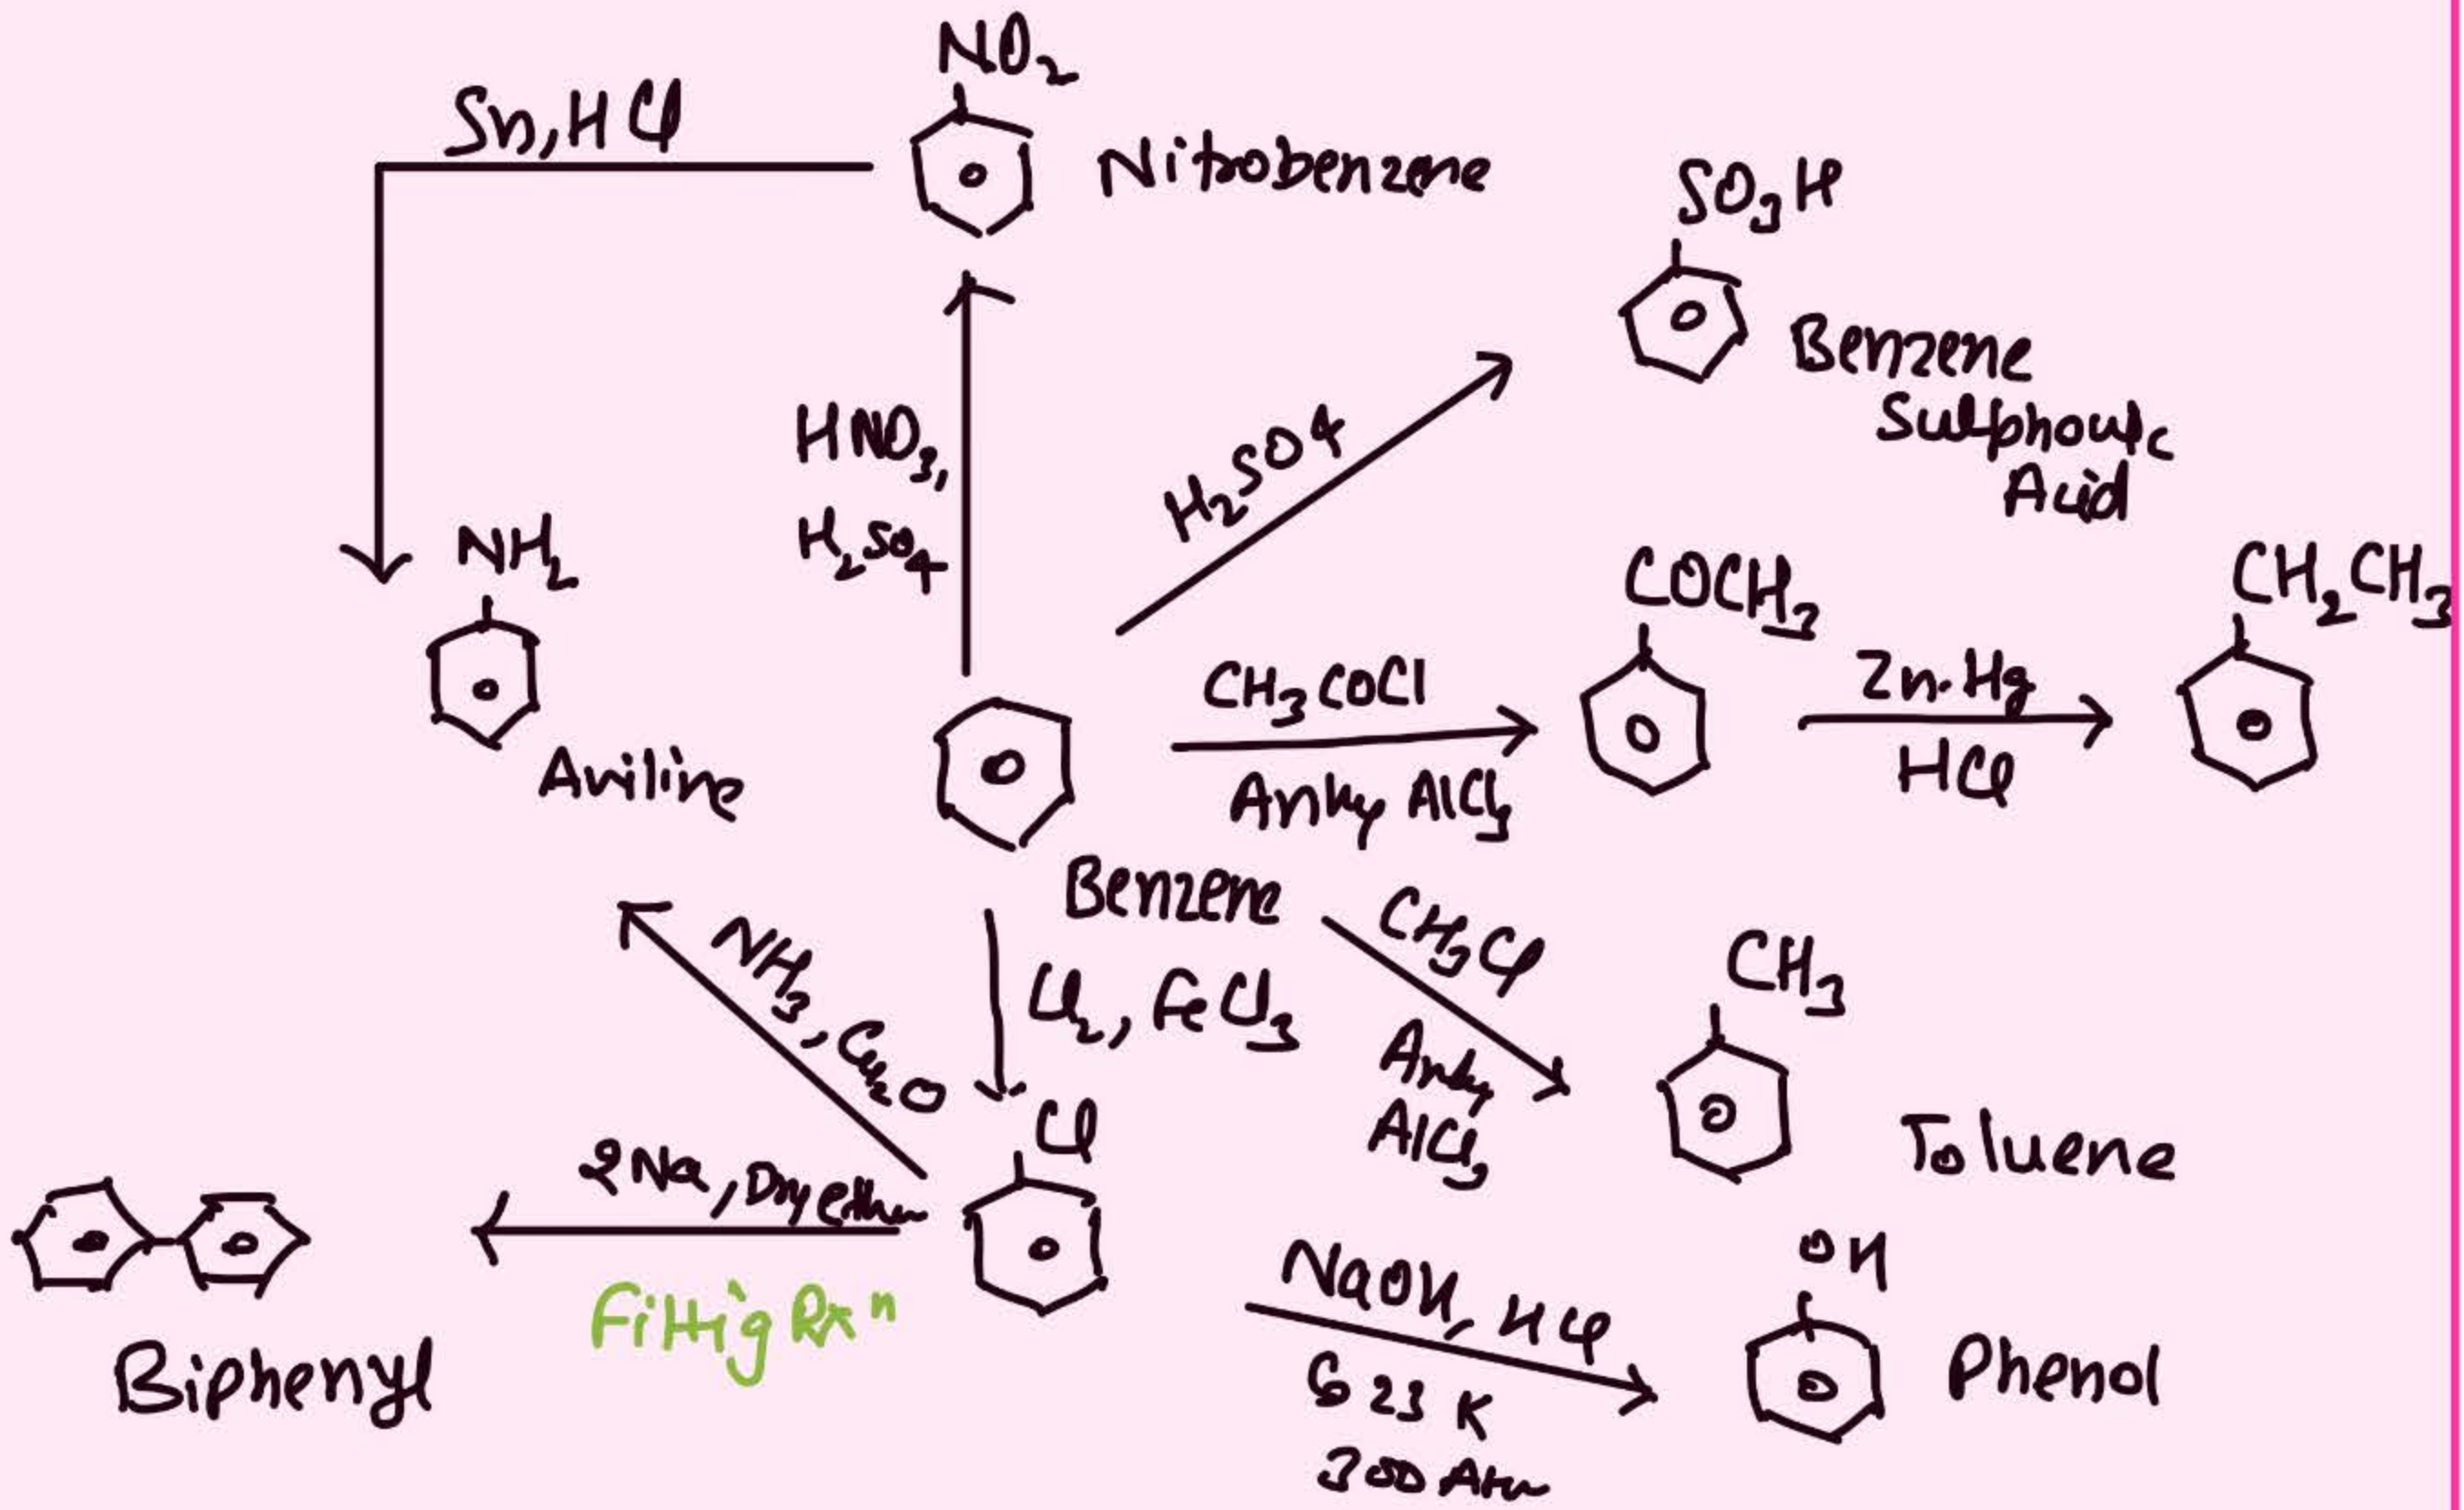 NO₂
Sn, HCl
Nitrobenzene
SO₃H
Benzene
Sulphonic
Acid
HNO₃,
H₂SO₄
H₂SO4
NH₂
Aniline
COCH₃
CH₂CH₃
CH₃COCl
Anhy AlCl₃
Zn.Hg
HCl
Benzene
CH₃Cl
Anhy
AlCl₃
CH₃
Toluene
NH₃, Cu₂O
Cl₂, FeCl₃
Cl
2Na, Dry ether
Fittig Rxⁿ
Biphenyl
NaOH, HCl
623 K
300 Atm
OH
Phenol